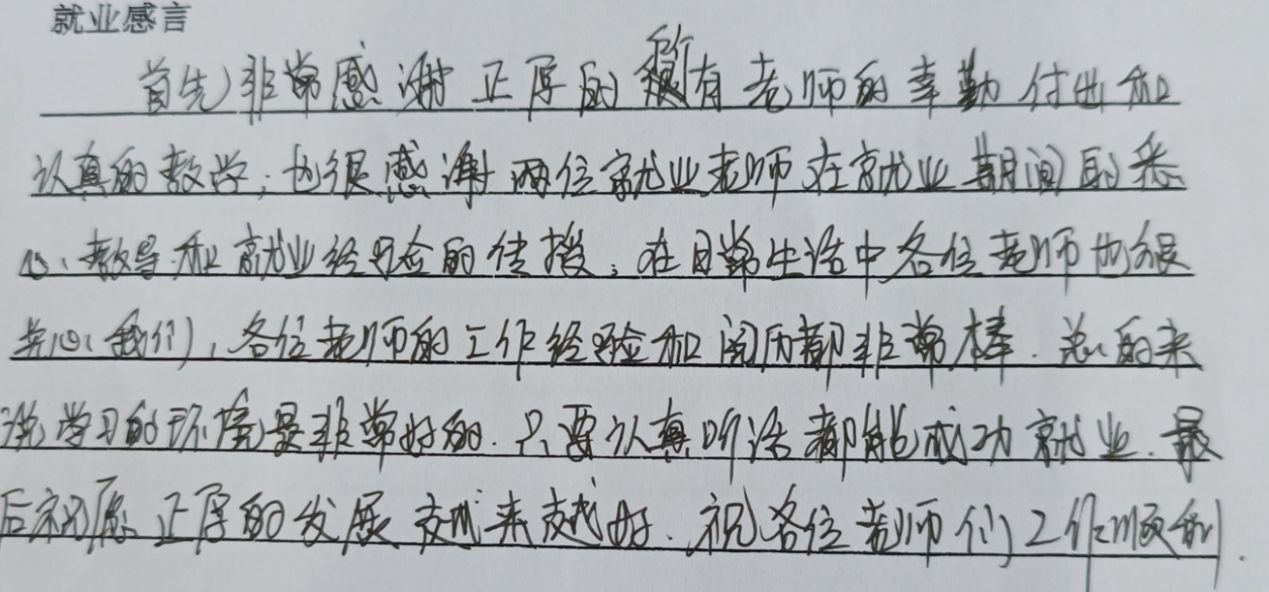 就业感言
首先非常感谢正厚的所有老师的辛勤付出和
认真的教学,也很感谢两位就业老师在就业期间的悉
心教导和就业经验的传授,在日常生活中各位老师也很
关心我们,各位老师的工作经验和阅历都非常棒.总的来
说学习的环境是非常好的.只要认真听话都能成功就业.最
后祝愿正厚的发展越来越好.祝各位老师们工作顺利.